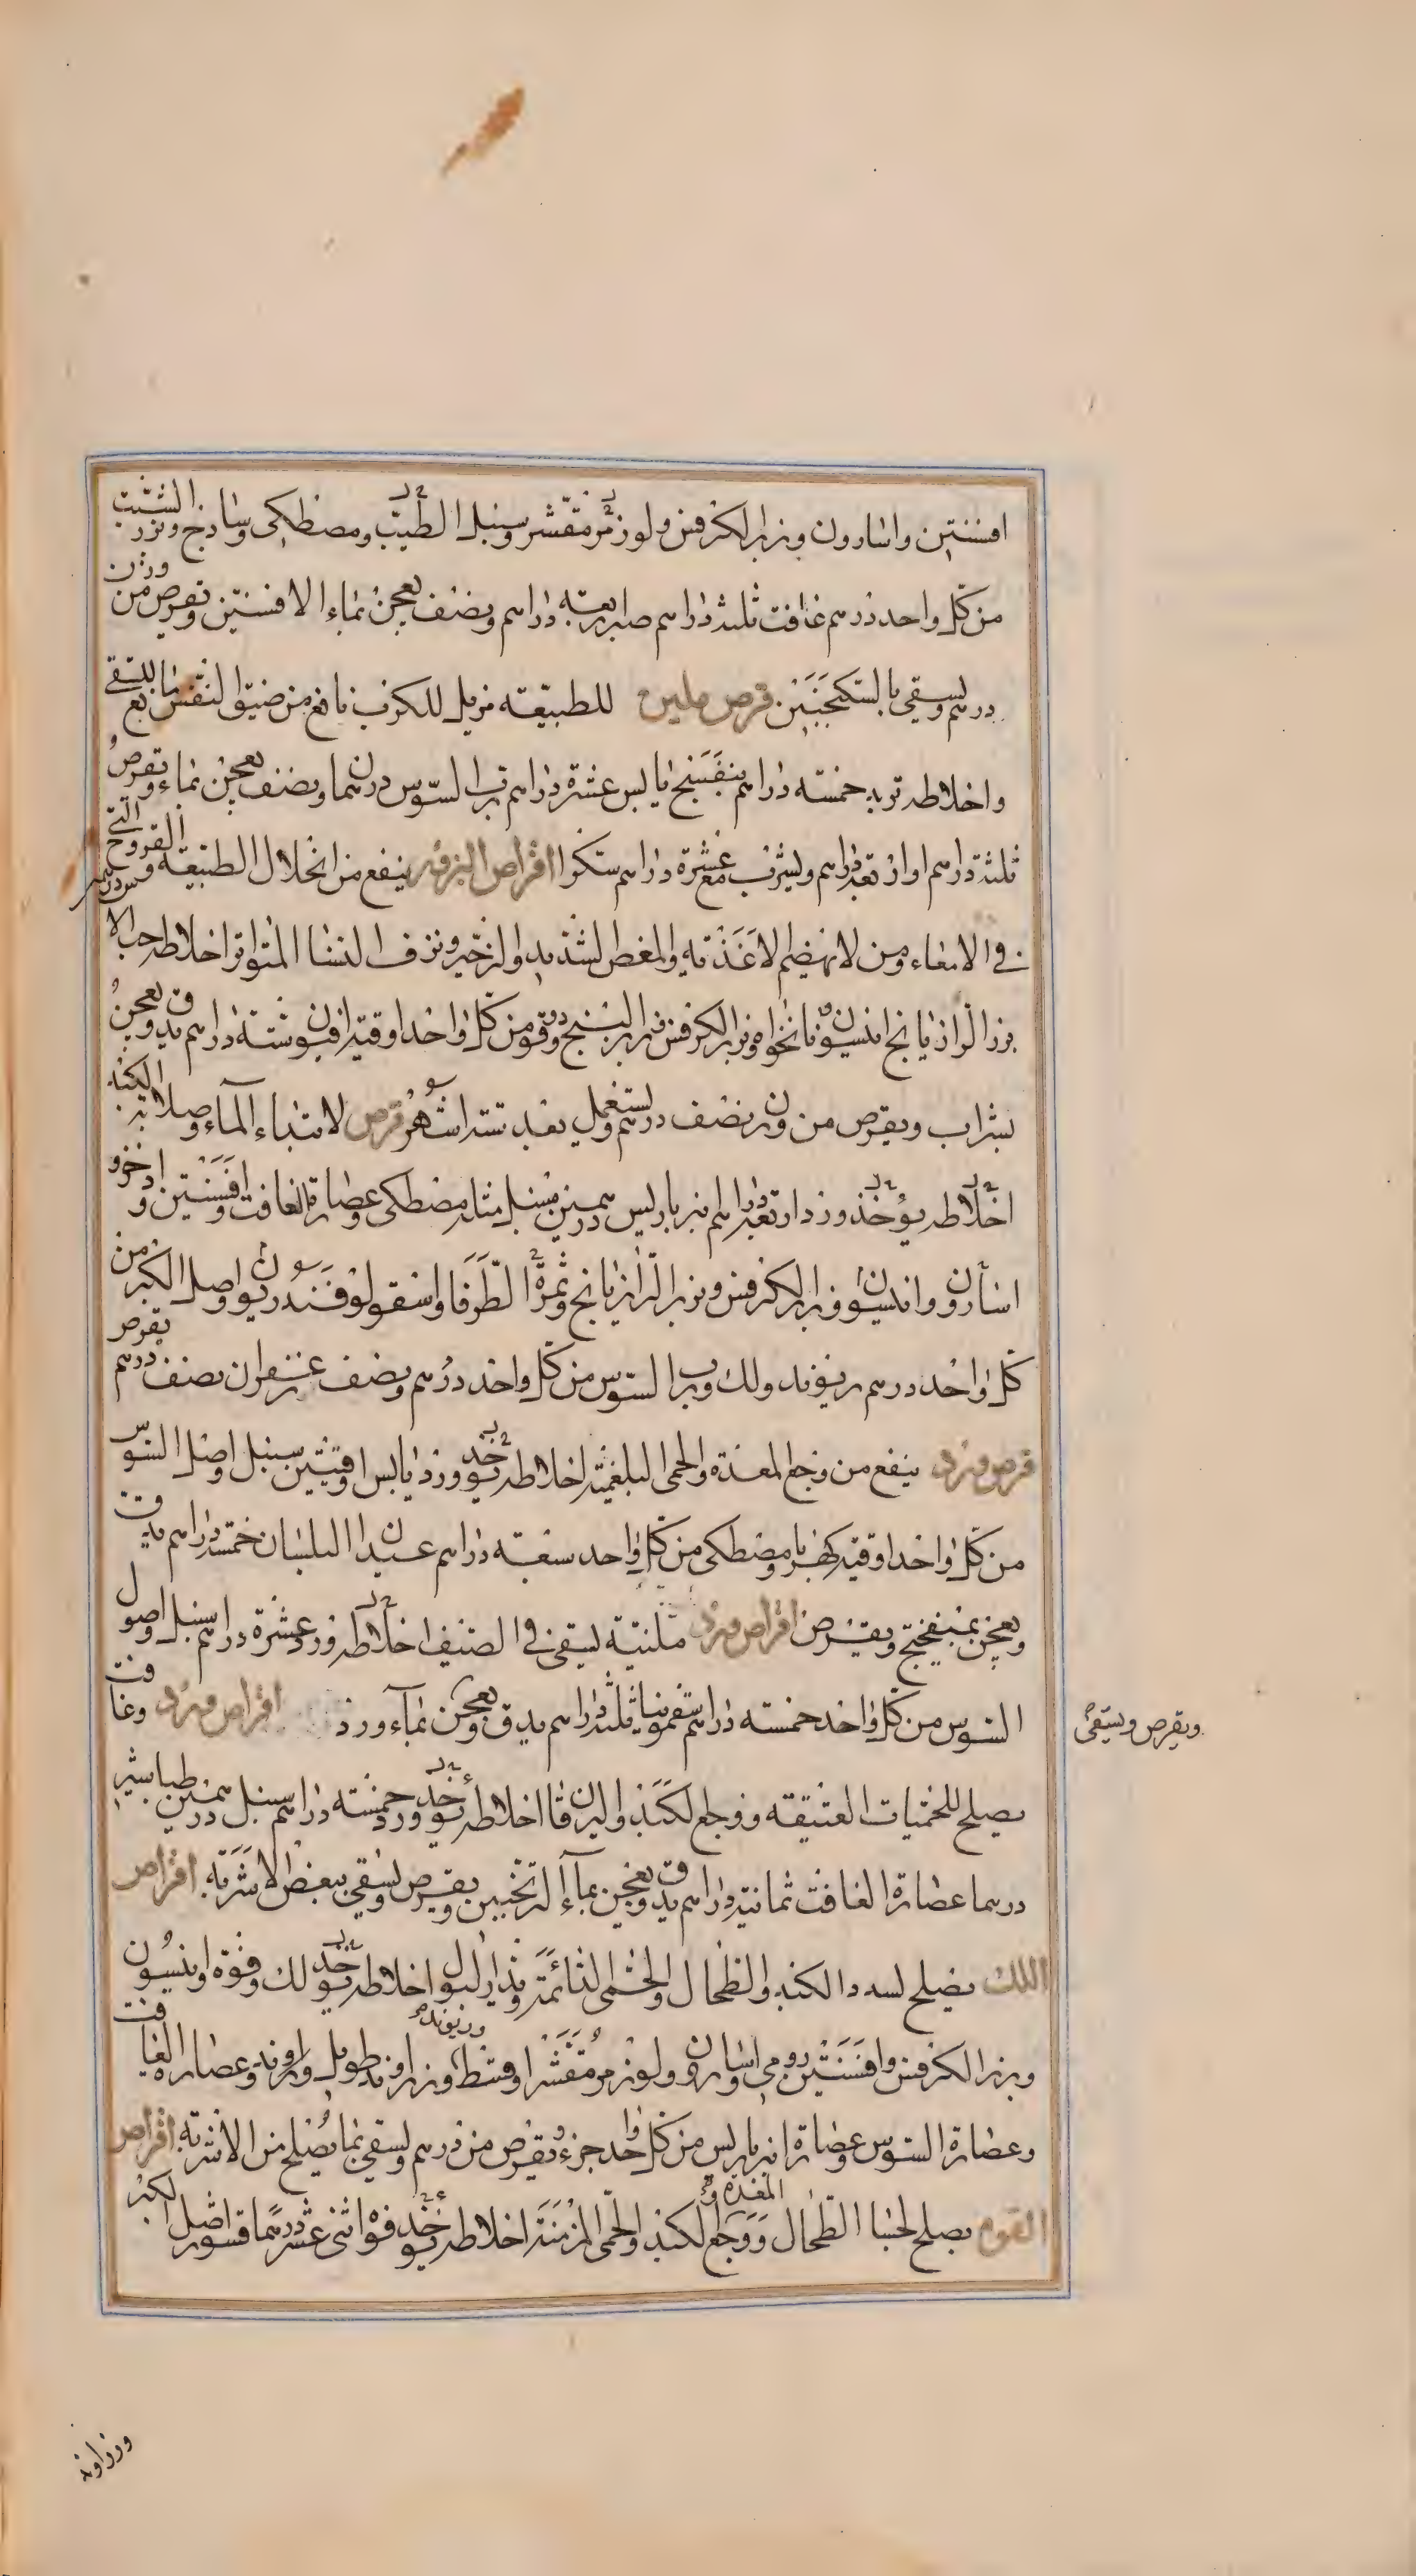 افسنتين واسارون وبزر الكرفس ولوز مر مقشر وسنبل الطيب ومصطكى وساذج وبزر الشبت
من كل واحد درهم غافت ثلثة دراهم صبر اربعة دراهم ونصف يعجن بماء الافسنتين ويقرص من وزن
درهم ويسقى بالسكنجبين قرص ملين للطبيعة مزيل للكرب نافع من ضيق النفس
واخلاطه تربد خمسة دراهم بنفسج يابس عشرة دراهم رب السوس درهما ونصف يعجن بماء ويقرص
ثلثة دراهم او اربعة دراهم ويشرب مع عشرة دراهم سكر اقراص البزور ينفع من انحلال الطبيعة والقروح التي
في الامعاء ومن لا تهضم الاغذية والمغص الشديد والزحير ونزف النسا المتواتر اخلاطه حب الاس
بزر الرازيانج انيسون نانخواه وبزر الكرفس بزر البنج دوقو من كل واحد اوقية افيون ستة دراهم يدق ويعجن
بشراب ويقرص من وزن نصف درهم ويستعمل بعد ستة اشهر قرص لابتداء الماء وصلابة الكبد
اخلاطه يؤخذ ورد اربعة دراهم انبرباريس درهمين سنبل مثله مصطكى وعصارة الغافت وافسنتين واذخر و
اسارون وانيسون وبزر الكرفس وبزر الرازيانج وثمرة الطرفا واسقولوقندريون واصل الكبر من
كل واحد درهم ريوند ولك ورب السوس من كل واحد درهم ونصف زعفران نصف درهم يقرص
قرص ورد ينفع من وجع المعدة والحمى البلغمية اخلاطه يؤخذ ورد يابس اوقيتين سنبل واصل السوس
من كل واحد اوقية كهربا ومصطكى من كل واحد سبعة دراهم عيدان البلسان خمسة دراهم يدق
ويعجن بميبختج ويقرص اقراص ورد ملينة يسقى في الصيف اخلاطه ورد عشرة دراهم سنبل واصول
السوس من كل واحد خمسة دراهم سقمونيا ثلثة دراهم يدق ويعجن بماء ورد اقراص ورد وغافت
ويقرص ويسقى
يصلح للحميات العتيقة ووجع الكبد واليرقان اخلاطه يؤخذ ورد خمسة دراهم سنبل درهمين طباشير
درهما عصارة الغافت ثمانية دراهم يدق ويعجن بماء الترنجبين ويقرص ويسقى ببعض الاشربة اقراص
اللك يصلح لسدد الكبد والطحال والحمى الدائمة وتدر البول اخلاطه يؤخذ لك وفوة وانيسون
وبزر الكرفس وافسنتين رومي واسارون ولوز مر مقشر وقسط وزراوند طويل وعصارة الغافت
وريوند
وعصارة السوس وعصارة انبرباريس من كل واحد جزء ويقرص من درهم ويسقى بما يصلح من الاشربة اقراص
الفوه يصلح لجسا الطحال ووجع الكبد والحمى المزمنة اخلاطه يؤخذ فوه اثنى عشر درهما قشور اصل الكبر
المعدة و
وزراوند